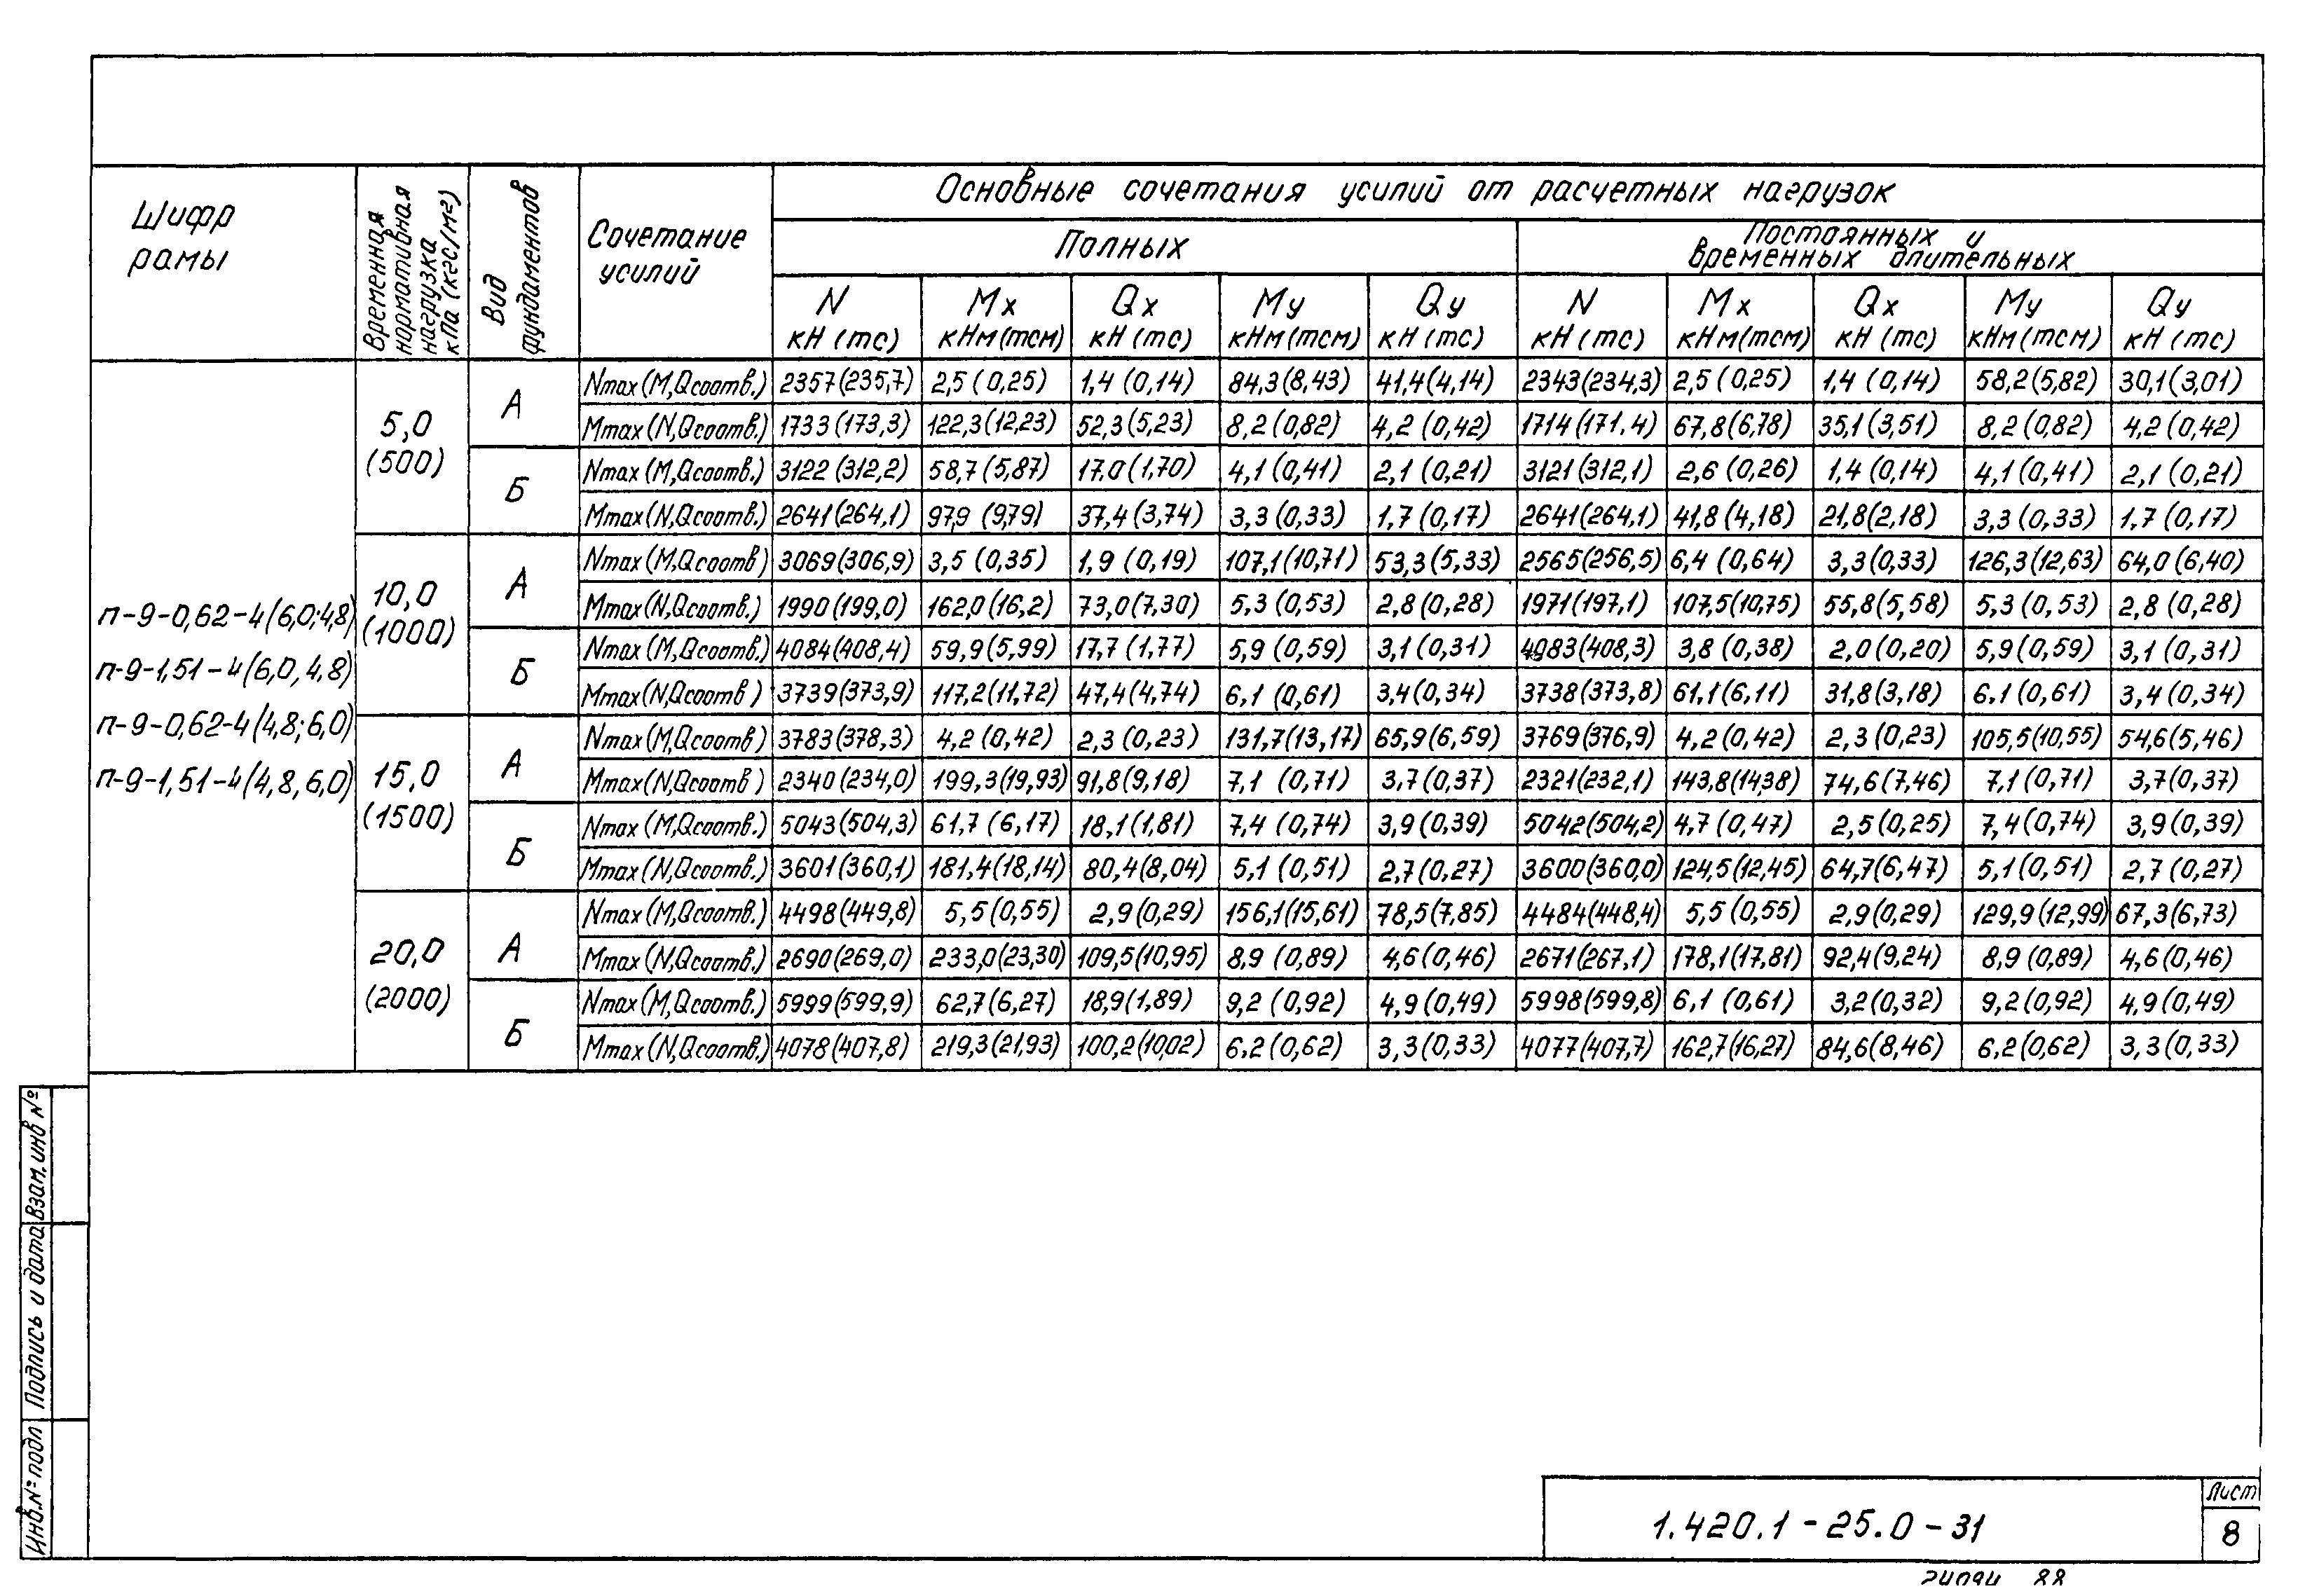 Шифр рамы
Временная нормативная нагрузка кПа (кгс/м²)
Вид фундаментов
Сочетание усилий
Основные сочетания усилий от расчетных нагрузок
Полных
Постоянных и временных длительных
N кН (тс) Mx кНм(тсм) Qx кН (тс) My кНм(тсм) Qy кН (тс) N кН (тс) Mx кНм(тсм) Qx кН (тс) My кНм(тсм) Qy кН (тс)
п-9-0,62-4(6,0;4,8)
п-9-1,51-4(6,0,4,8)
п-9-0,62-4(4,8;6,0)
п-9-1,51-4(4,8,6,0)
5,0 (500)
А
Nmax(M,Qсоотв.) 2357(235,7) 2,5 (0,25) 1,4 (0,14) 84,3(8,43) 41,4(4,14) 2343(234,3) 2,5 (0,25) 1,4 (0,14) 58,2(5,82) 30,1(3,01)
Mmax(N,Qсоотв.) 1733(173,3) 122,3(12,23) 52,3(5,23) 8,2(0,82) 4,2 (0,42) 1714(171.4) 67,8(6,78) 35,1(3,51) 8,2(0,82) 4,2(0,42)
Б
Nmax(M,Qсоотв.) 3122(312,2) 58,7(5,87) 17.0(1,70) 4,1(0,41) 2,1 (0,21) 3121(312,1) 2,6 (0,26) 1,4(0,14) 4,1(0,41) 2,1 (0,21)
Mmax(N,Qсоотв.) 2641(264,1) 97,9 (9,79) 37,4(3,74) 3,3(0,33) 1,7 (0,17) 2641(264,1) 41,8(4,18) 21,8(2,18) 3,3(0,33) 1,7 (0,17)
10,0 (1000)
А
Nmax(M,Qсоотв) 3069(306,9) 3,5 (0,35) 1,9 (0,19) 107,1(10,71) 53,3(5,33) 2565(256,5) 6,4 (0,64) 3,3(0,33) 126,3(12,63) 64,0(6,40)
Mmax(N,Qсоотв.) 1990(199,0) 162,0(16,2) 73,0(7,30) 5,3(0,53) 2,8(0,28) 1971(197,1) 107,5(10,75) 55,8(5,58) 5,3(0,53) 2,8 (0,28)
Б
Nmax(M,Qсоотв.) 4084(408,4) 59,9(5,99) 17,7(1,77) 5,9(0,59) 3,1(0,31) 4083(408,3) 3,8 (0,38) 2,0(0,20) 5,9(0,59) 3,1(0,31)
Mmax(N,Qсоотв ) 3739(373,9) 117,2(11,72) 47,4(4,74) 6,1 (0,61) 3,4(0,34) 3738(373,8) 61,1(6,11) 31,8(3,18) 6,1(0,61) 3,4 (0,34)
15,0 (1500)
А
Nmax(M,Qсоотв ) 3783(378,3) 4,2 (0,42) 2,3 (0,23) 131,7(13,17) 65,9(6,59) 3769(376,9) 4,2(0,42) 2,3 (0,23) 105,5(10,55) 54,6(5,46)
Mmax(N,Qсоотв ) 2340(234,0) 199,3(19,93) 91,8(9,18) 7,1 (0,71) 3,7(0,37) 2321(232,1) 143,8(14,38) 74,6(7,46) 7,1(0,71) 3,7(0,37)
Б
Nmax(M,Qсоотв.) 5043(504,3) 61,7 (6,17) 18,1(1,81) 7,4 (0,74) 3,9(0,39) 5042(504,2) 4,7(0,47) 2,5(0,25) 7,4(0,74) 3,9(0,39)
Mmax(N,Qсоотв.) 3601(360,1) 181,4(18,14) 80,4(8,04) 5,1 (0,51) 2,7(0,27) 3600(360,0) 124,5(12,45) 64,7(6,47) 5,1(0,51) 2,7 (0,27)
20,0 (2000)
А
Nmax(M,Qсоотв.) 4498(449,8) 5,5(0,55) 2,9(0,29) 156,1(15,61) 78,5(7,85) 4484(448,4) 5,5(0,55) 2,9(0,29) 129,9(12,99) 67,3(6,73)
Mmax(N,Qсоотв.) 2690(269,0) 233,0(23,30) 109,5(10,95) 8,9 (0,89) 4,6(0,46) 2671(267,1) 178,1(17,81) 92,4(9,24) 8,9 (0,89) 4,6(0,46)
Б
Nmax(M,Qсоотв.) 5999(599,9) 62,7(6,27) 18,9(1,89) 9,2 (0,92) 4,9(0,49) 5998(599,8) 6,1 (0,61) 3,2(0,32) 9,2(0,92) 4,9(0,49)
Mmax(N,Qсоотв.) 4078(407,8) 219,3(21,93) 100,2(10,02) 6,2(0,62) 3,3(0,33) 4077(407,7) 162,7(16,27) 84,6(8,46) 6,2(0,62) 3,3(0,33)
Взам.инв №
Подпись и дата
Инв.№ подл
1.420.1-25.0-31
Лист
8
24094 88